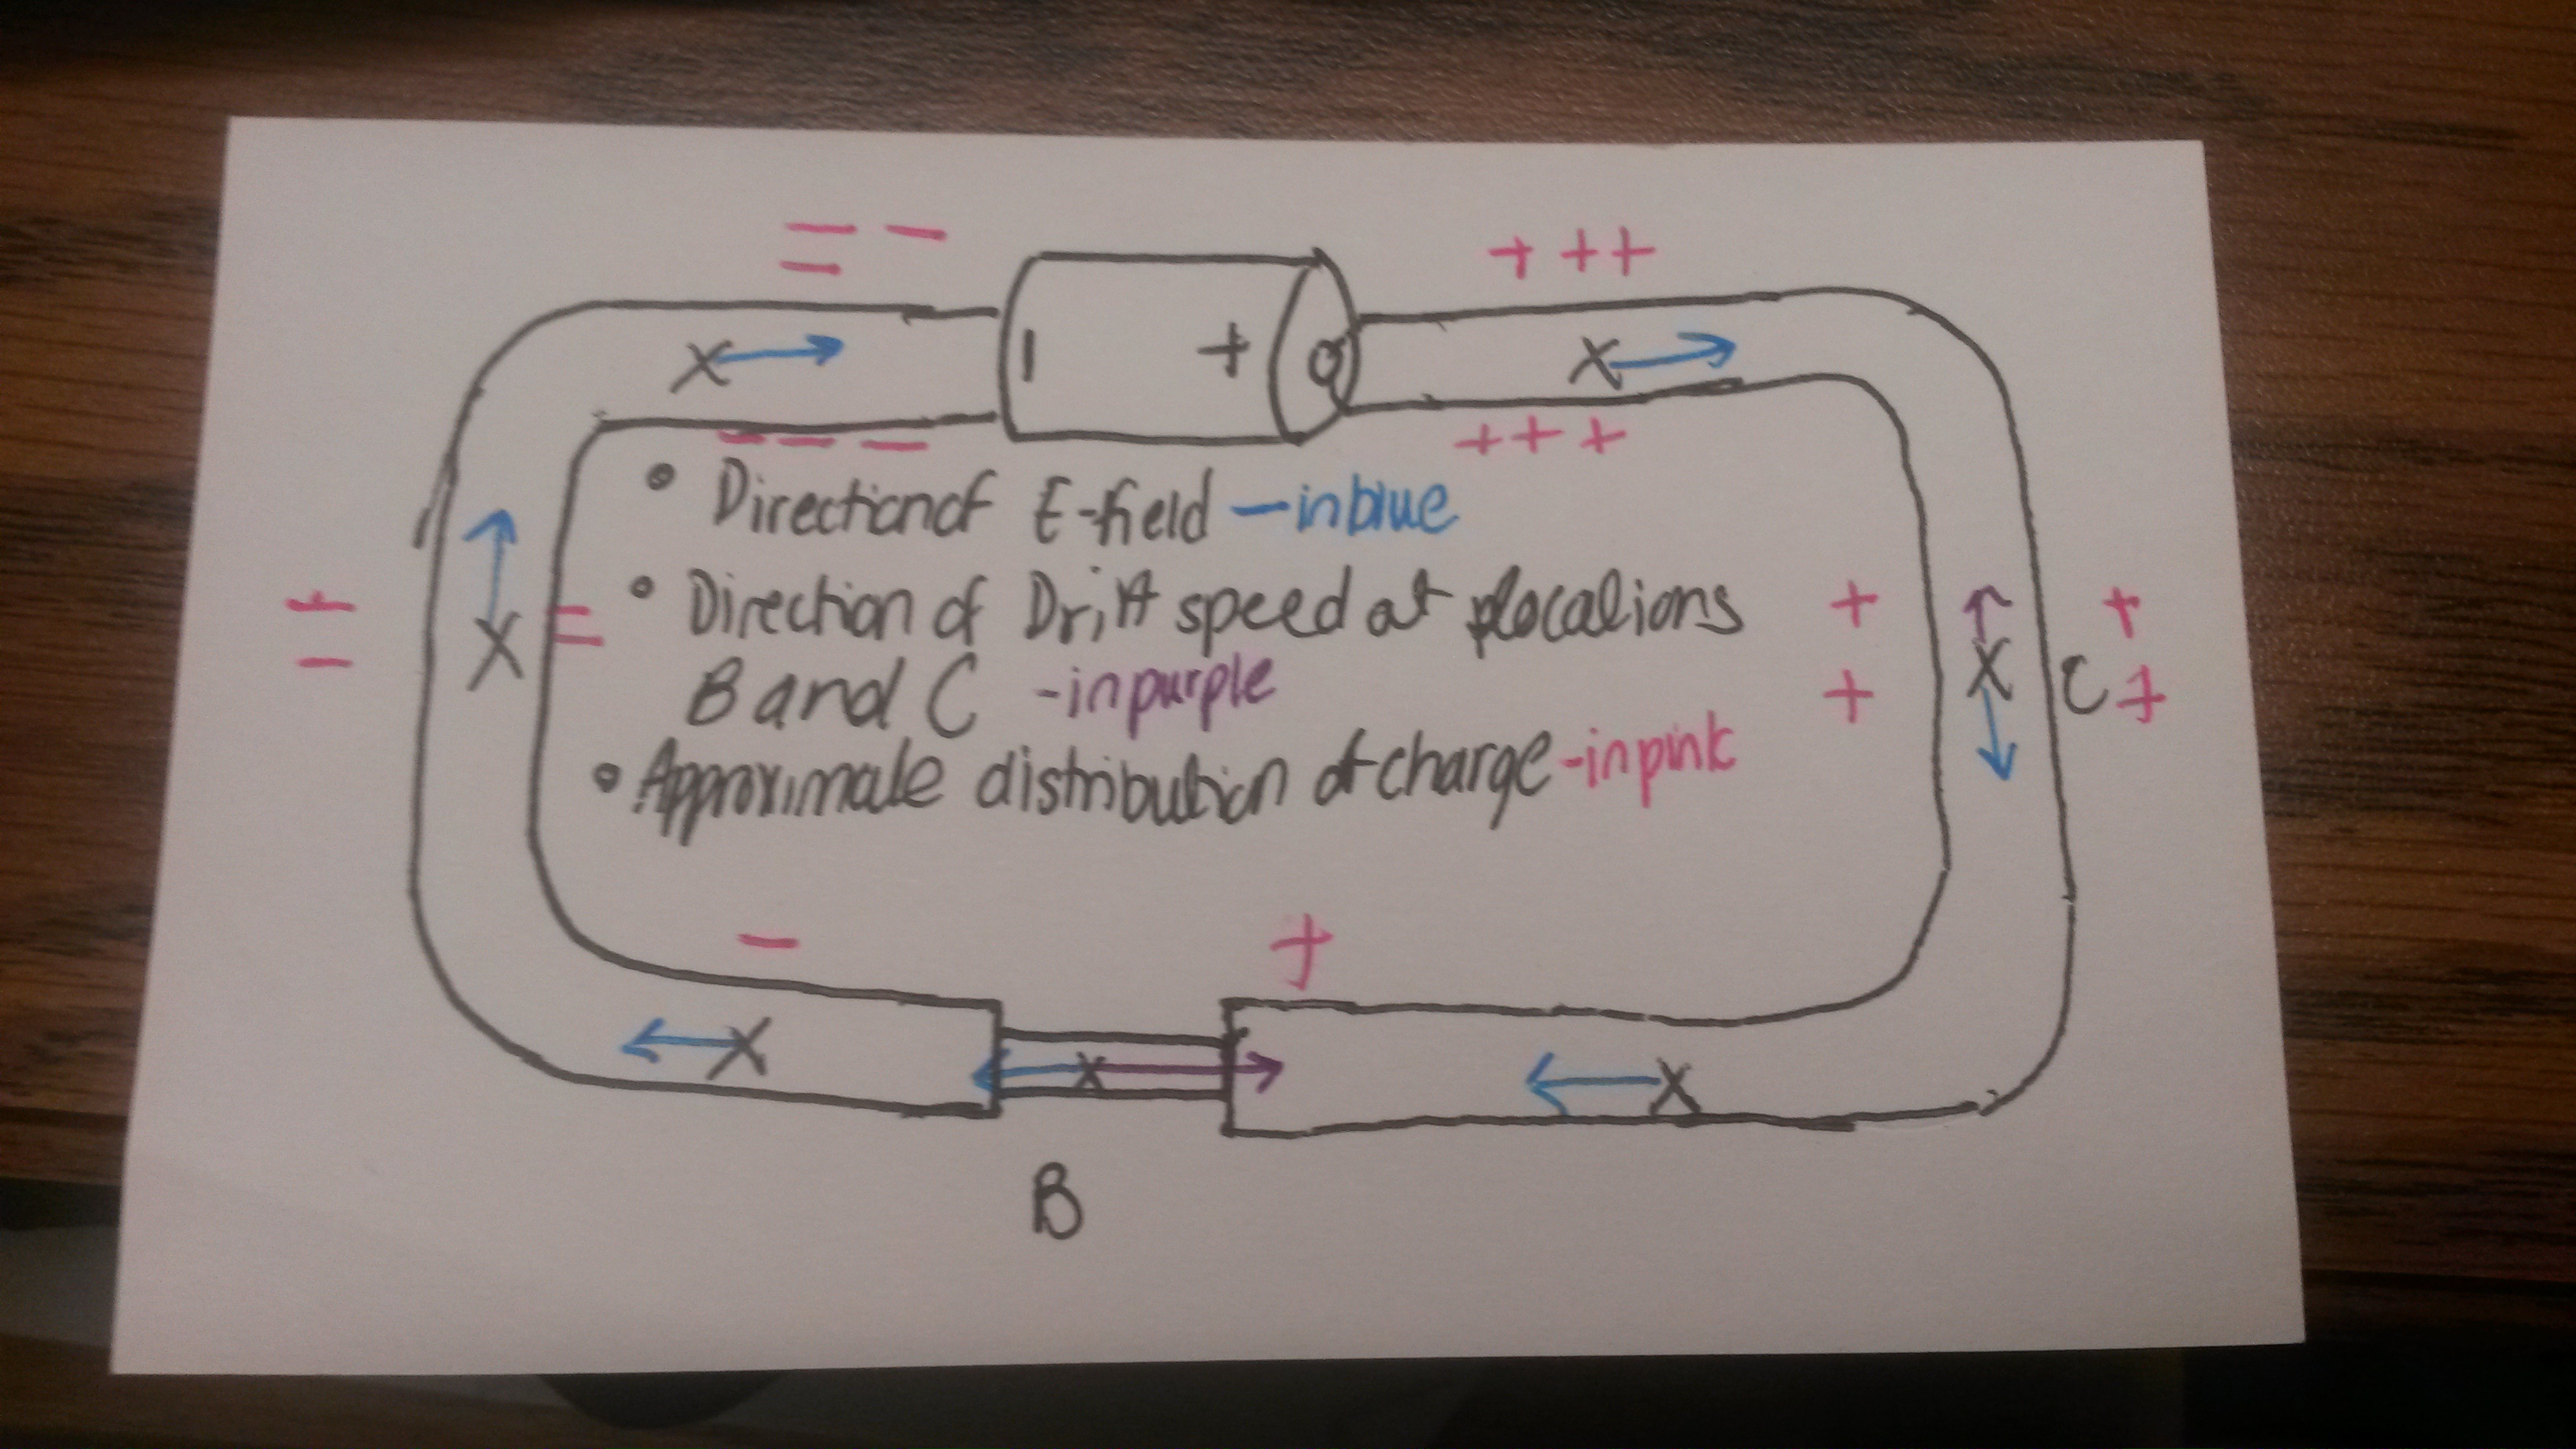 = -
+ ++
- +
- - -
+ + +
• Direction of E-field - in blue
• Direction of Drift speed at locations
B and C - in purple
• Approximate distribution of charge - in pink
= =
+ +
+ C +
- +
B